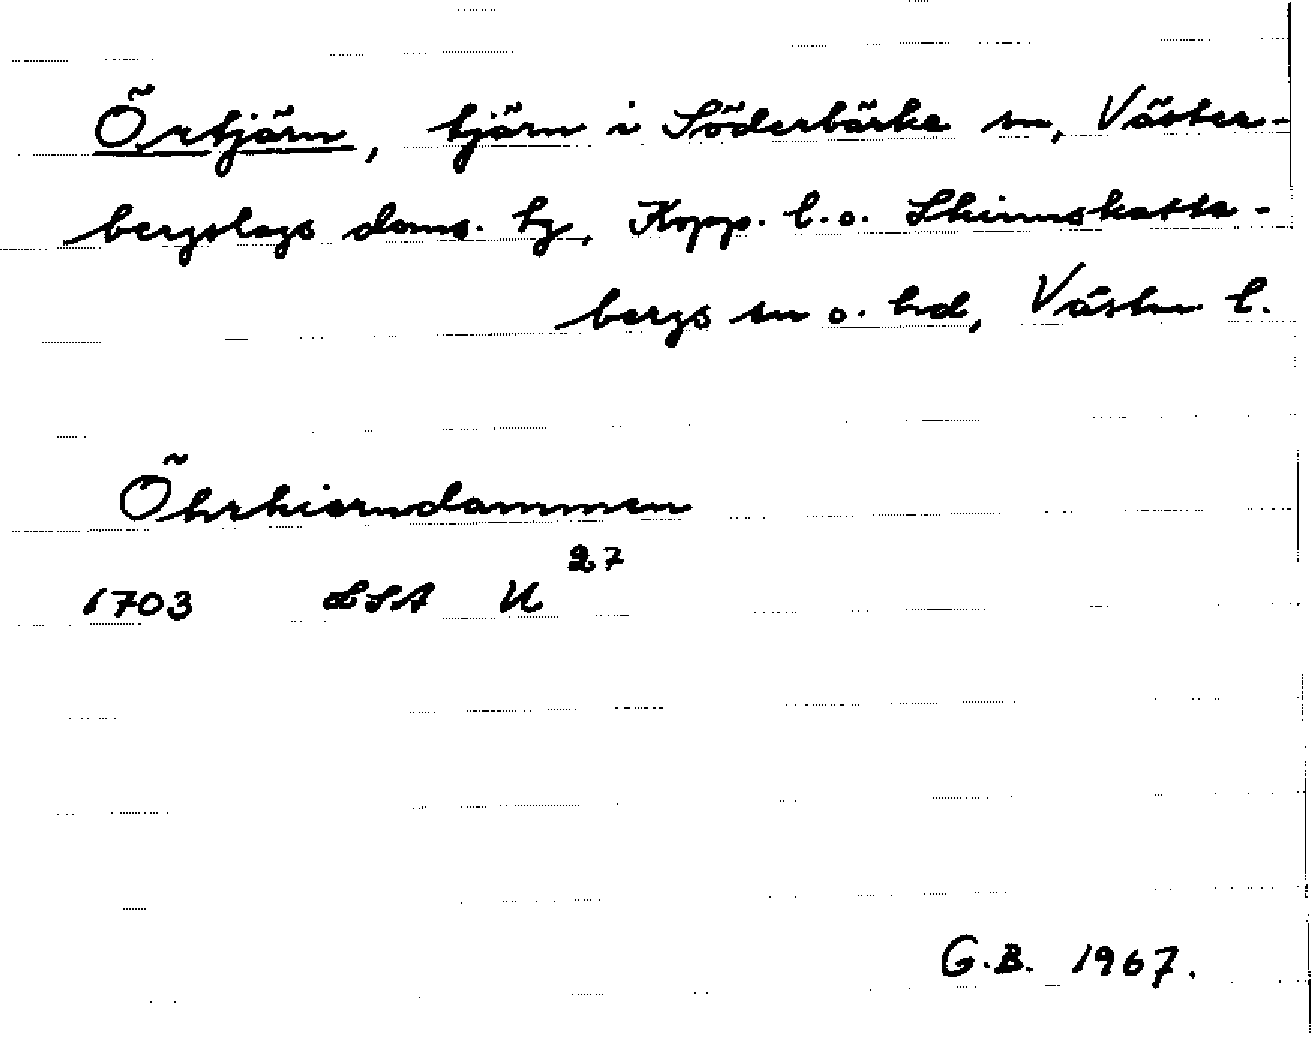 Örtjärn, tjärn i Söderbärke sn, Väster-
bergslags doms. tg, Kopp. l. o. Skinnskatte-
bergs sn o. hd, Västm l.
Öhrtierndammen
27
1703 LSA U
G.B. 1967.